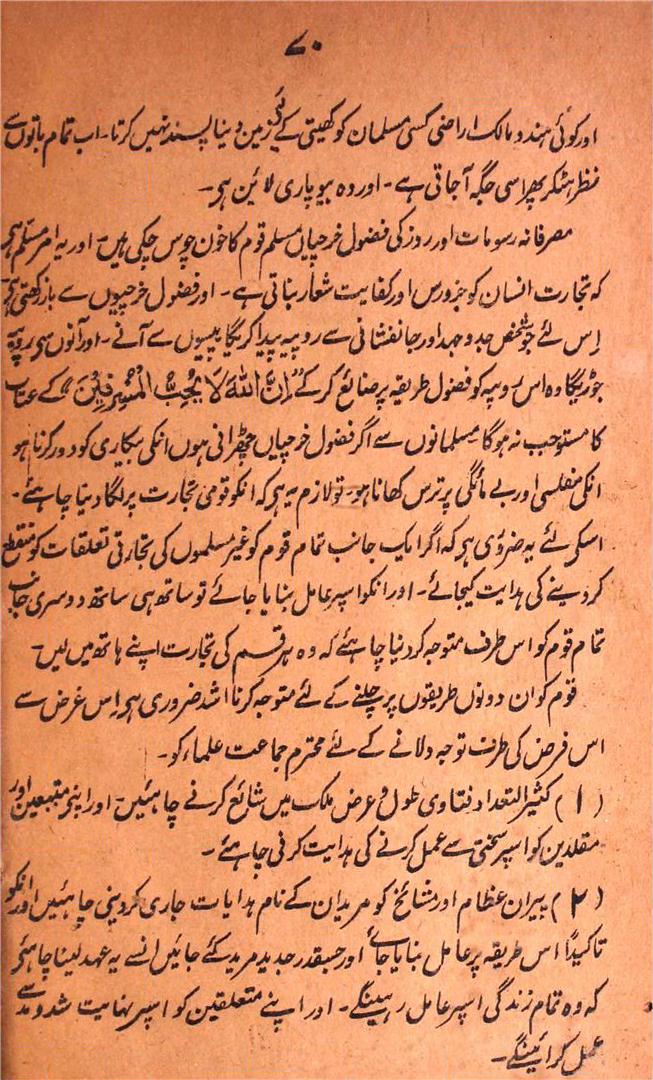 ۷۰
اور کوئی ہندو مالک اراضی کسی مسلمان کو کھیتی کے لئے زمین دینا پسند نہیں کرتا۔ اب تمام باتوں سے
نظر ہٹکر پھر اسی جگہ آجاتی ہے۔ اور وہ بیوپاری لائین ہی۔
مصرفانہ رسومات اور روز کی فضول خرچیاں مسلم قوم کا خون چوس چکی ہیں۔ اور یہ امر مسلّم ہی
کہ تجارت انسان کو جزورس اور کفایت شعار بناتی ہے۔ اور فضول خرچیوں سے باز رکھتی ہی
اِس لئے جو شخص جدوجہد اور جانفشانی سے روپیہ پیدا کریگا پیسوں سے آنے۔ اور آنوں سی روپیہ
جوڑیگا وہ اس روپیہ کو فضول طریقہ پر ضایع کر کے "اِنَّ اللّٰہَ لَا یُحِبُّ الْمُسْرِفِیْنَ" کے عتاب
کا مستوجب نہ ہوگا مسلمانوں سے اگر فضول خرچیاں چھڑانی ہوں انکی بیکاری کو دور کرنا ہو
انکی مفلسی اور بے مائگی پر ترس کھانا ہو۔ تو لازم یہ ہی کہ انکو قومی تجارت پر لگا دینا چاہئے۔
اسکی لئے یہ ضروری ہی کہ اگر ایک جانب تمام قوم کو غیر مسلموں کی تجارتی تعلقات کو منقطع
کر دینے کی ہدایت کیجائے۔ اور انکو اسپر عامل بنایا جائے تو ساتھ ہی ساتھ دوسری جانب
تمام قوم کو اس طرف متوجہ کر دینا چاہئے کہ وہ ہر قسم کی تجارت اپنے ہاتھ میں لیں۔
قوم کو ان دونوں طریقوں پر چلنے کے لئے متوجہ کرنا اشد ضروری ہی اِس غرض سے
اس فرض کی طرف توجہ دلانے کے لئے محترم جماعت علماء کو۔
(۱) کثیر التعداد فتاوی طول و عرض ملک میں شائع کرنے چاہئیں۔ اور اپنی متبعین اور
مقلدین کو اسپر سختی سے عمل کرنے کی ہدایت کرنی چاہئے۔
(۲) پیران عظام اور مشائخ کو مریدان کے نام ہدایات جاری کر دینی چاہئیں اور انکو
تاکیداً اس طریقہ پر عامل بنایا جائے اور جسقدر جدید مرید کئے جائیں انسے یہ عہد لینا چاہئے
کہ وہ تمام زندگی اسپر عامل رہینگے۔ اور اپنے متعلقین کو اسپر نہایت شد و مد سے
عمل کرائینگے۔